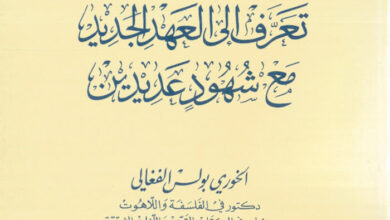 تعَرَّف إلى العَهْدِ الجَديد
مَعَ شُهُودٍ عَديدِين
الخوري بولس الفغالي
دكتور في الفلسَفة واللّاهوت